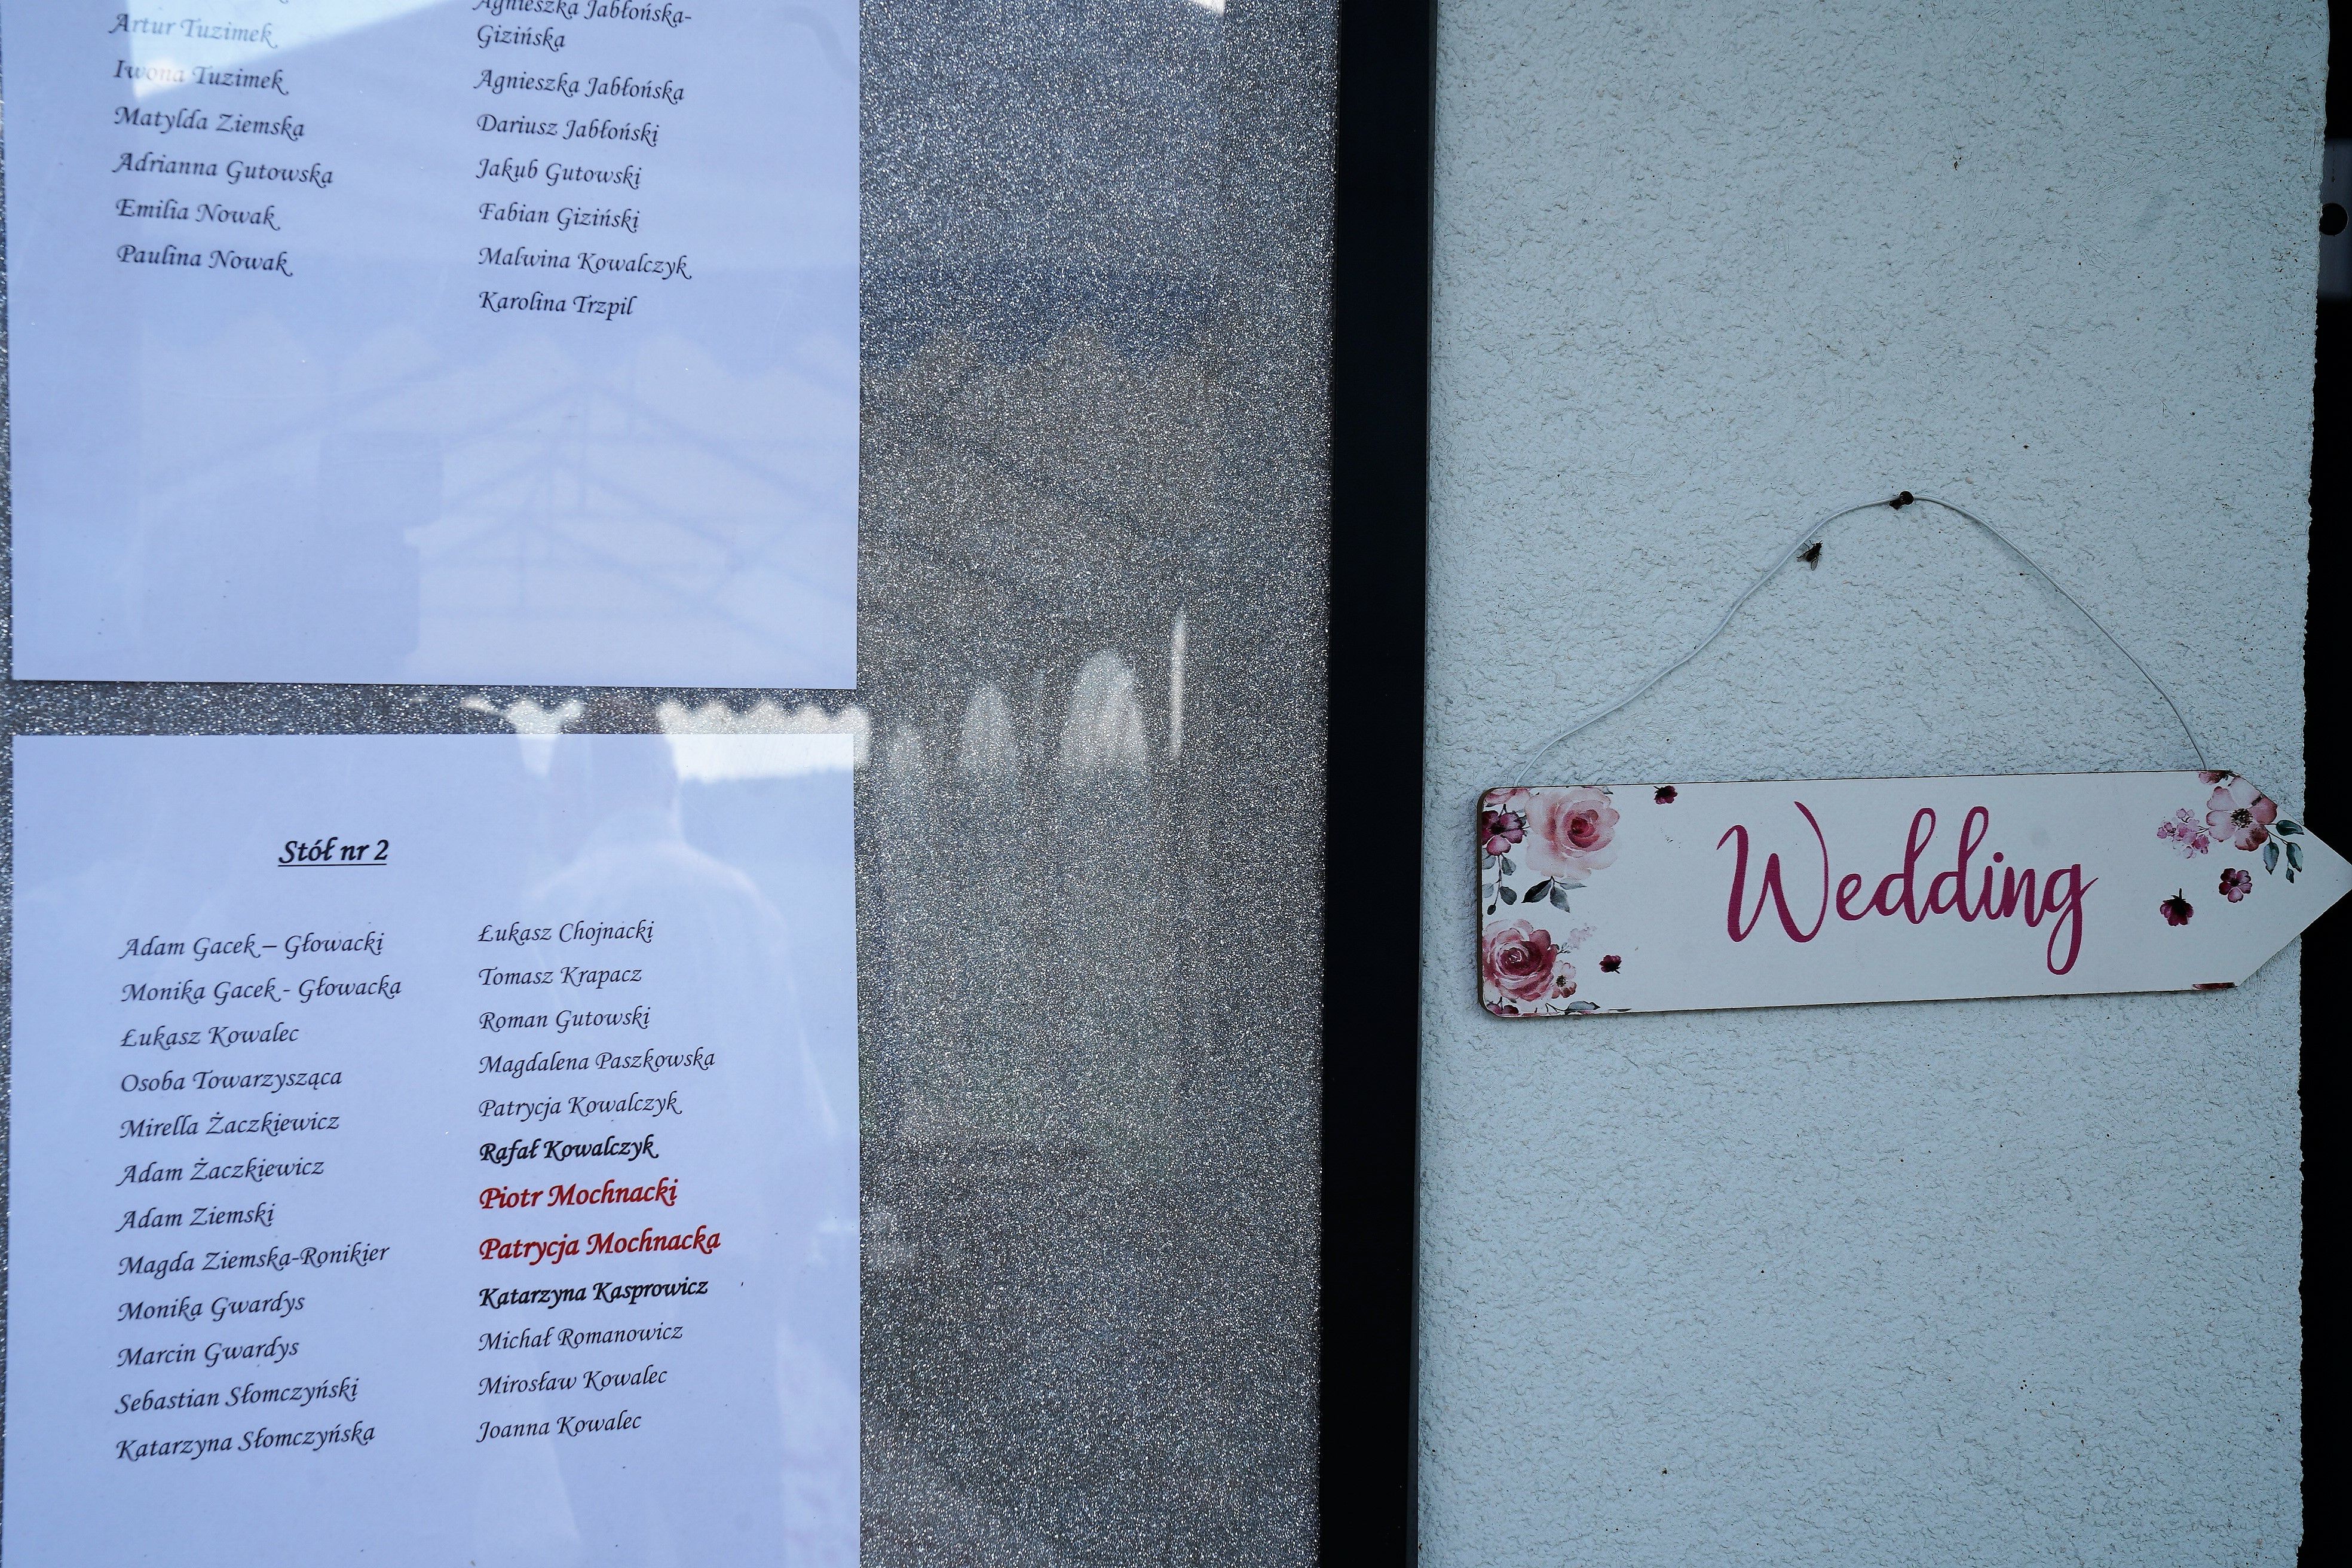 Artur Tuzimek
Iwona Tuzimek
Matylda Ziemska
Adrianna Gutowska
Emilia Nowak
Paulina Nowak
Agnieszka Jabłońska-
Gizińska
Agnieszka Jabłońska
Dariusz Jabłoński
Jakub Gutowski
Fabian Giziński
Malwina Kowalczyk
Karolina Trzpil
Stół nr 2
Adam Gacek – Głowacki
Monika Gacek - Głowacka
Łukasz Kowalec
Osoba Towarzysząca
Mirella Żaczkiewicz
Adam Żaczkiewicz
Adam Ziemski
Magda Ziemska-Ronikier
Monika Gwardys
Marcin Gwardys
Sebastian Słomczyński
Katarzyna Słomczyńska
Łukasz Chojnacki
Tomasz Krapacz
Roman Gutowski
Magdalena Paszkowska
Patrycja Kowalczyk
Rafał Kowalczyk
Piotr Mochnacki
Patrycja Mochnacka
Katarzyna Kasprowicz
Michał Romanowicz
Mirosław Kowalec
Joanna Kowalec
Wedding